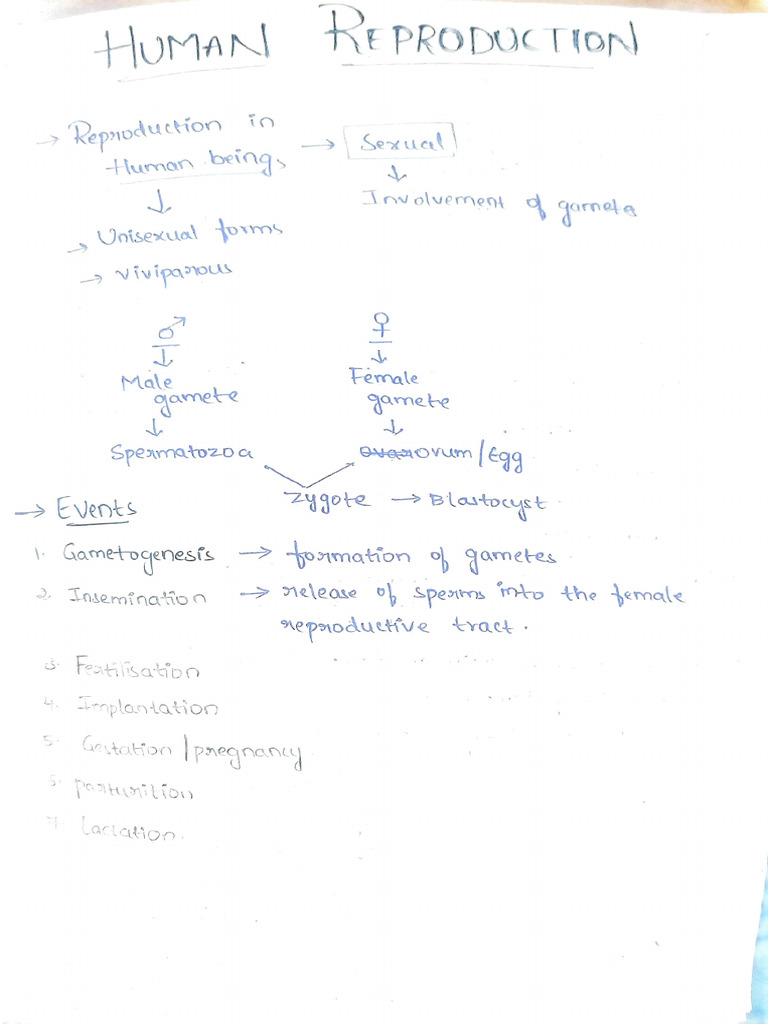 HUMAN REPRODUCTION
→ Reproduction in → Sexual
Human beings
↓ ↓
Involvement of gamets
→ Unisexual forms
→ viviparous
♂ ♀
↓ ↓
Male gamete Female gamete
↓ ↓
Spermatozoa ovum/Egg
Zygote → Blastocyst
→ Events
1. Gametogenesis → formation of gametes
2. Insemination → release of sperms into the female
reproductive tract.
3. Fertilisation
4. Implantation
5. Gestation/pregnancy
6. parturition
7. Lactation.